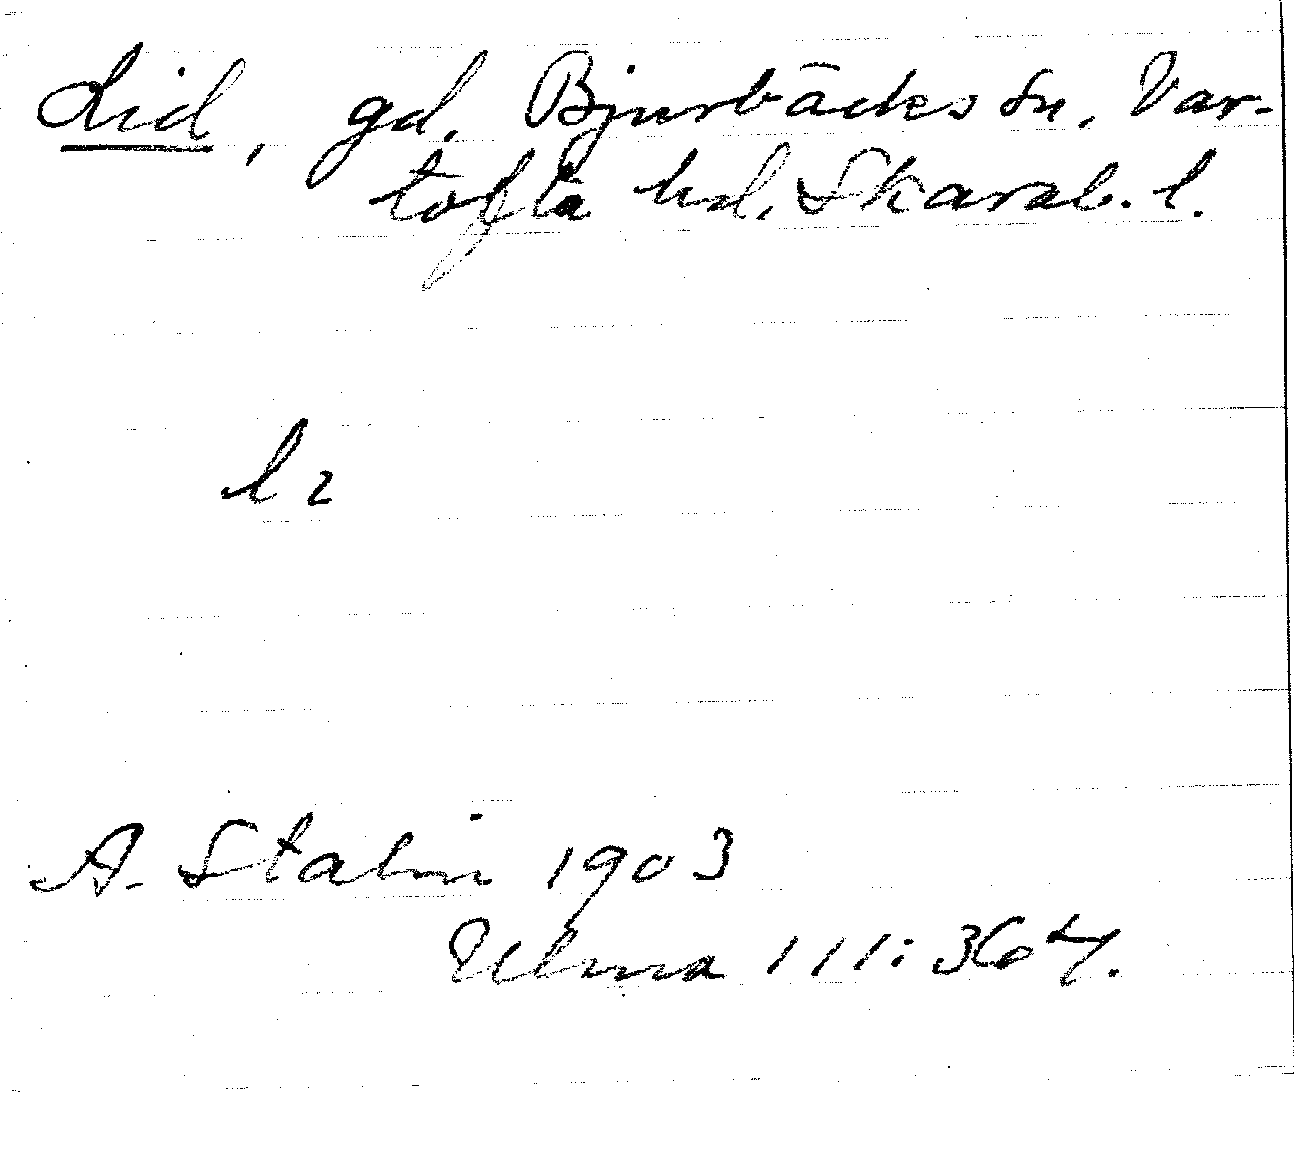 Lid, gd. Bjurbäcks sn. Var-
tofta hd. Skarab. l.
lɩ
A. Stalin 1903
Ulma 111:367.